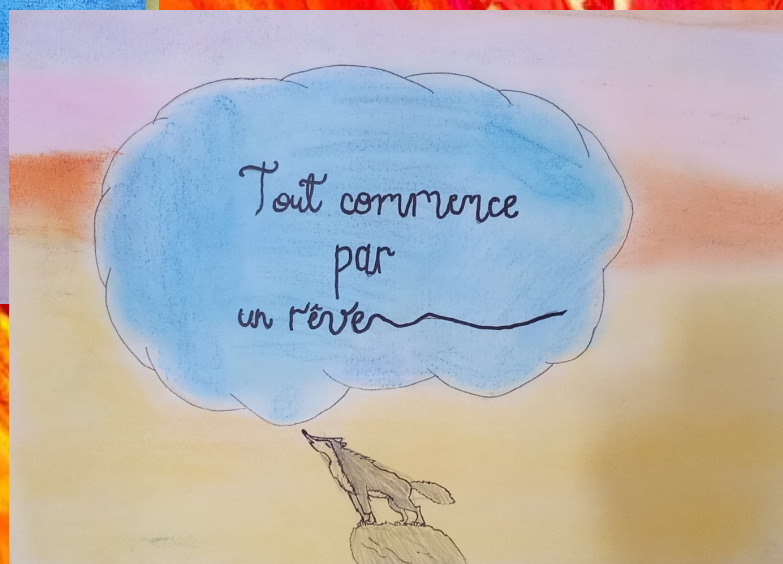 Tout commence
par
un rêve